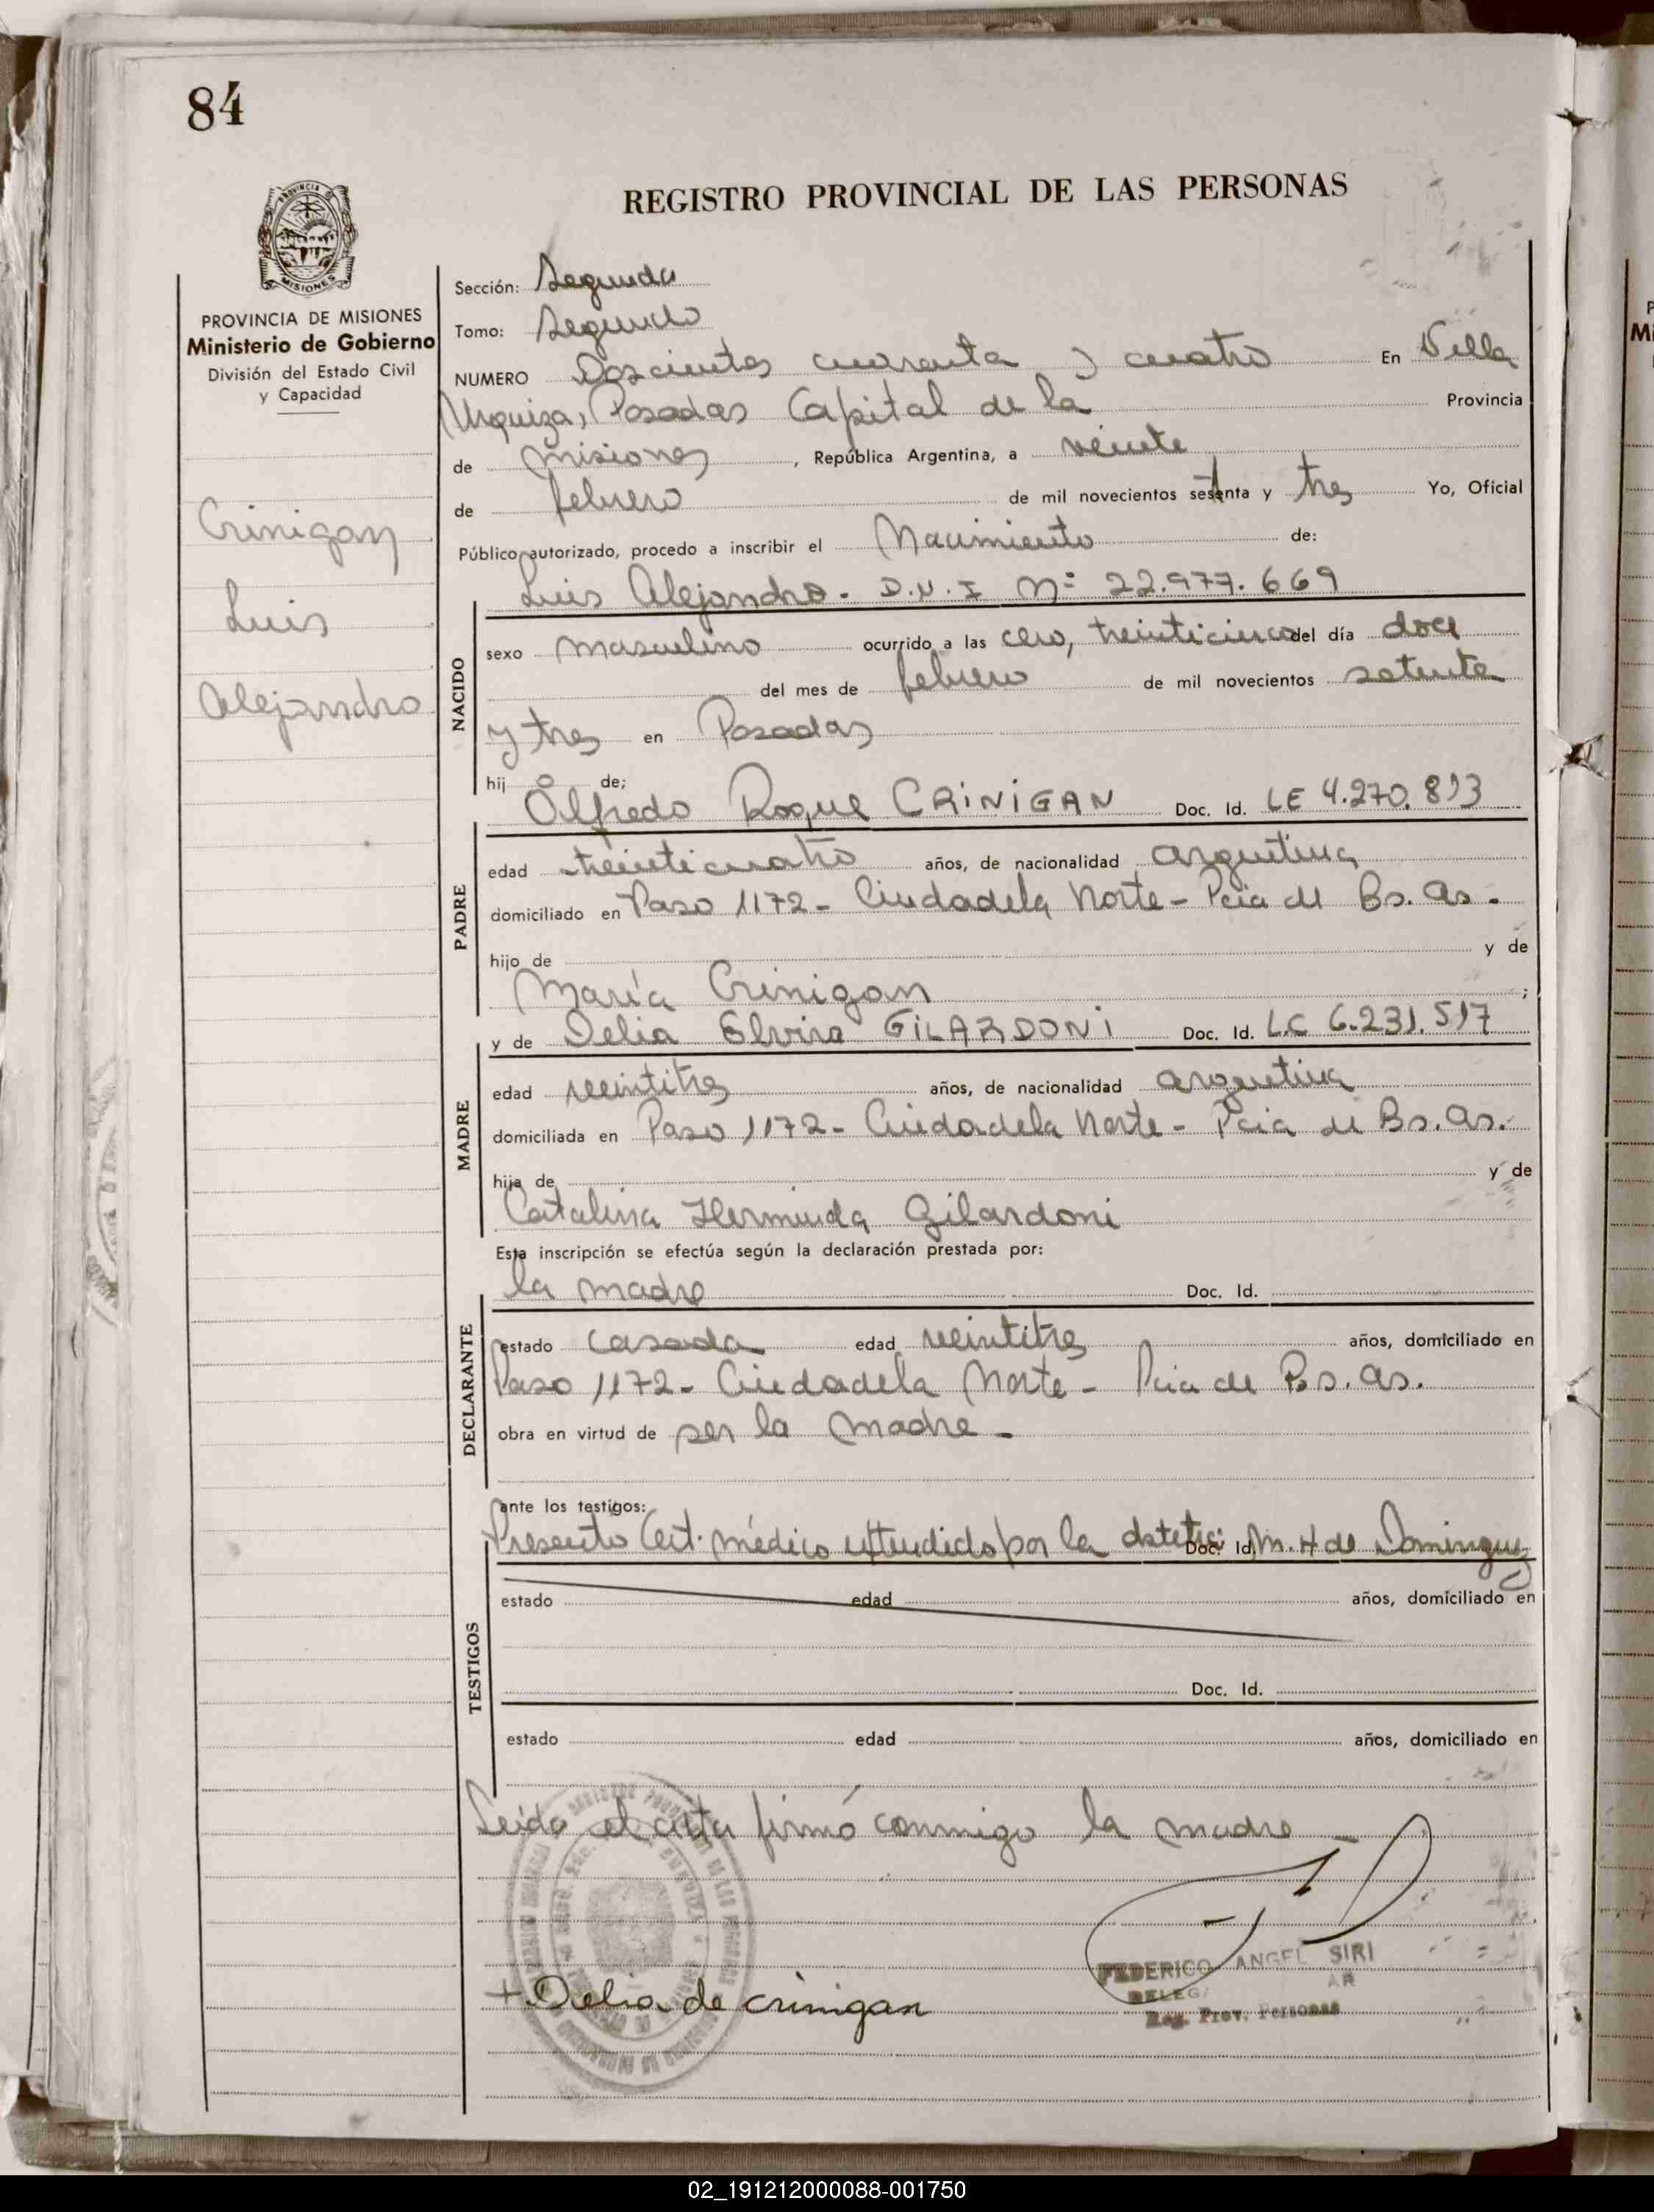 84
REGISTRO PROVINCIAL DE LAS PERSONAS
PROVINCIA DE MISIONES
MISIONES
PROVINCIA DE MISIONES
Ministerio de Gobierno
División del Estado Civil
y Capacidad
Crinigan
Luis
Alejandro
Sección: Segunda
Tomo: Segundo
NUMERO Doscientos cuarenta y cuatro En Villa
Urquiza, Posadas Capital de la Provincia
de Misiones, República Argentina, a veinte
de febrero de mil novecientos setenta y tres Yo, Oficial
Público autorizado, procedo a inscribir el Nacimiento de:
Luis Alejandro. D.N.I Nº 22.977.669
NACIDO
sexo masculino ocurrido a las cero, treinticinco del día doce
del mes de febrero de mil novecientos setenta
y tres en Posadas
hij o de;
Alfredo Roque CRINIGAN Doc. Id. LE 4.270.813
PADRE
edad treinticuatro años, de nacionalidad argentina
domiciliado en Paso 1172 - Ciudadela Norte - Pcia de Bs. As.
hijo de y de
María Crinigan ;
y de Delia Elvira GILARDONI Doc. Id. LC 6.231.517
MADRE
edad veintitres años, de nacionalidad argentina
domiciliada en Paso 1172 - Ciudadela Norte - Pcia de Bs. As.
hija de y de
Catalina Herminda Gilardoni
Esta inscripción se efectúa según la declaración prestada por:
la madre Doc. Id.
DECLARANTE
estado casada edad veintitres años, domiciliado en
Paso 1172 - Ciudadela Norte - Pcia de Bs. As.
obra en virtud de ser la madre -
ante los testigos:
Presento Cert. médico extendido por la Doc. Id. M. H de Dominguez
TESTIGOS
estado edad años, domiciliado en
Doc. Id.
estado edad años, domiciliado en
Leída el acta firmó conmigo la madre -
+ Delia de crinigan
FEDERICO ANGEL SIRI
Reg. Prov. Personas
02_191212000088-001750